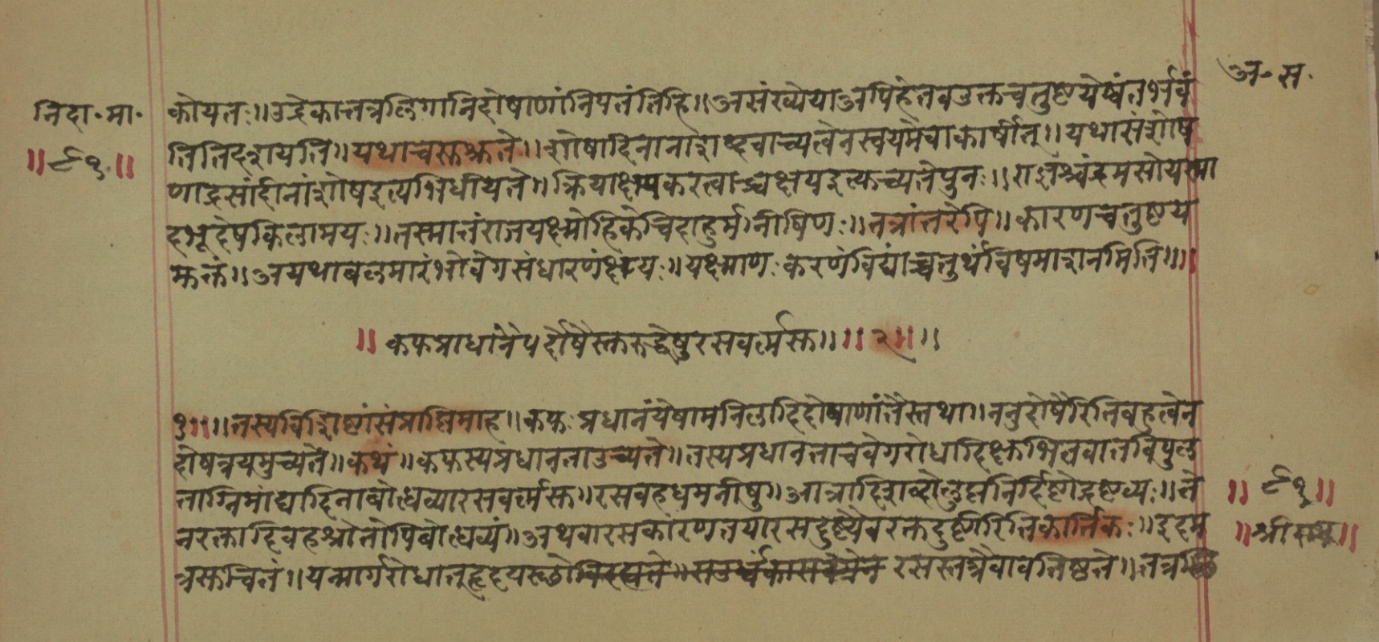 अ॰स॰
निदा॰मा॰ कोयतः॥उद्रेकात्तत्रलिंगानिदोषाणांनिपतंतिहि॥असंख्येयाअपिहेतवउक्तचतुष्टयेष्वंतर्भवं
॥९१॥ तितिदर्शयति॥यथाचसुश्रुते॥शोषादिनानाशब्दवाच्यत्वेनस्वयमेवाकार्षीत्॥यथासंशोष
णाद्रसादीनांशोषइत्यभिधीयते॥क्रियाक्षयकरत्वाच्चक्षयइत्युच्यतेपुनः॥राज्ञश्चंद्रमसोयस्मा
दभूदेषकिलामयः॥तस्मात्तंराजयक्ष्मेतिकेचिदाहुर्मनीषिणः॥तत्रांतरेपि॥कारणचतुष्टय
मुक्तं॥अयथाबलमारंभोवेगसंधारणंक्षयः॥यक्ष्माणःकरणंविद्याच्चतुर्थंविषमाशनमिति॥
॥कफप्राधानैर्दोषैस्तुरुद्धेषुरसवर्त्मसु॥॥२॥॥
१॥॥तस्यविशिष्टांसंप्राप्तिमाह॥कफःप्रधानंयेषामनिलादिदोषाणांतैस्तथा॥ननुदोषैरितिबहुत्वेन
दोषत्रयमुच्यते॥कथं॥कफस्यप्रधानताउच्यते॥तस्यप्रधानताचवेगरोधादि
ताग्निमांद्यादिनाबोधव्यारसवर्त्मसु॥रसवहधमनीषु॥आत्रादिशब्दोलुप्तनिर्दिष्टोद्रष्टव्यः॥ते ॥९१॥
नरक्तादिवहश्रोतोपिबोधव्यं॥अथवारसकारणतयारसदुष्ट्यैवरक्तदुष्टिरितिकार्तिकः॥इदम ॥श्रीराम॥
त्रसूचितं॥यन्मार्गरोधात्हृदयस्थो रसस्तत्रैवावतिष्ठते॥तत्रस्थि